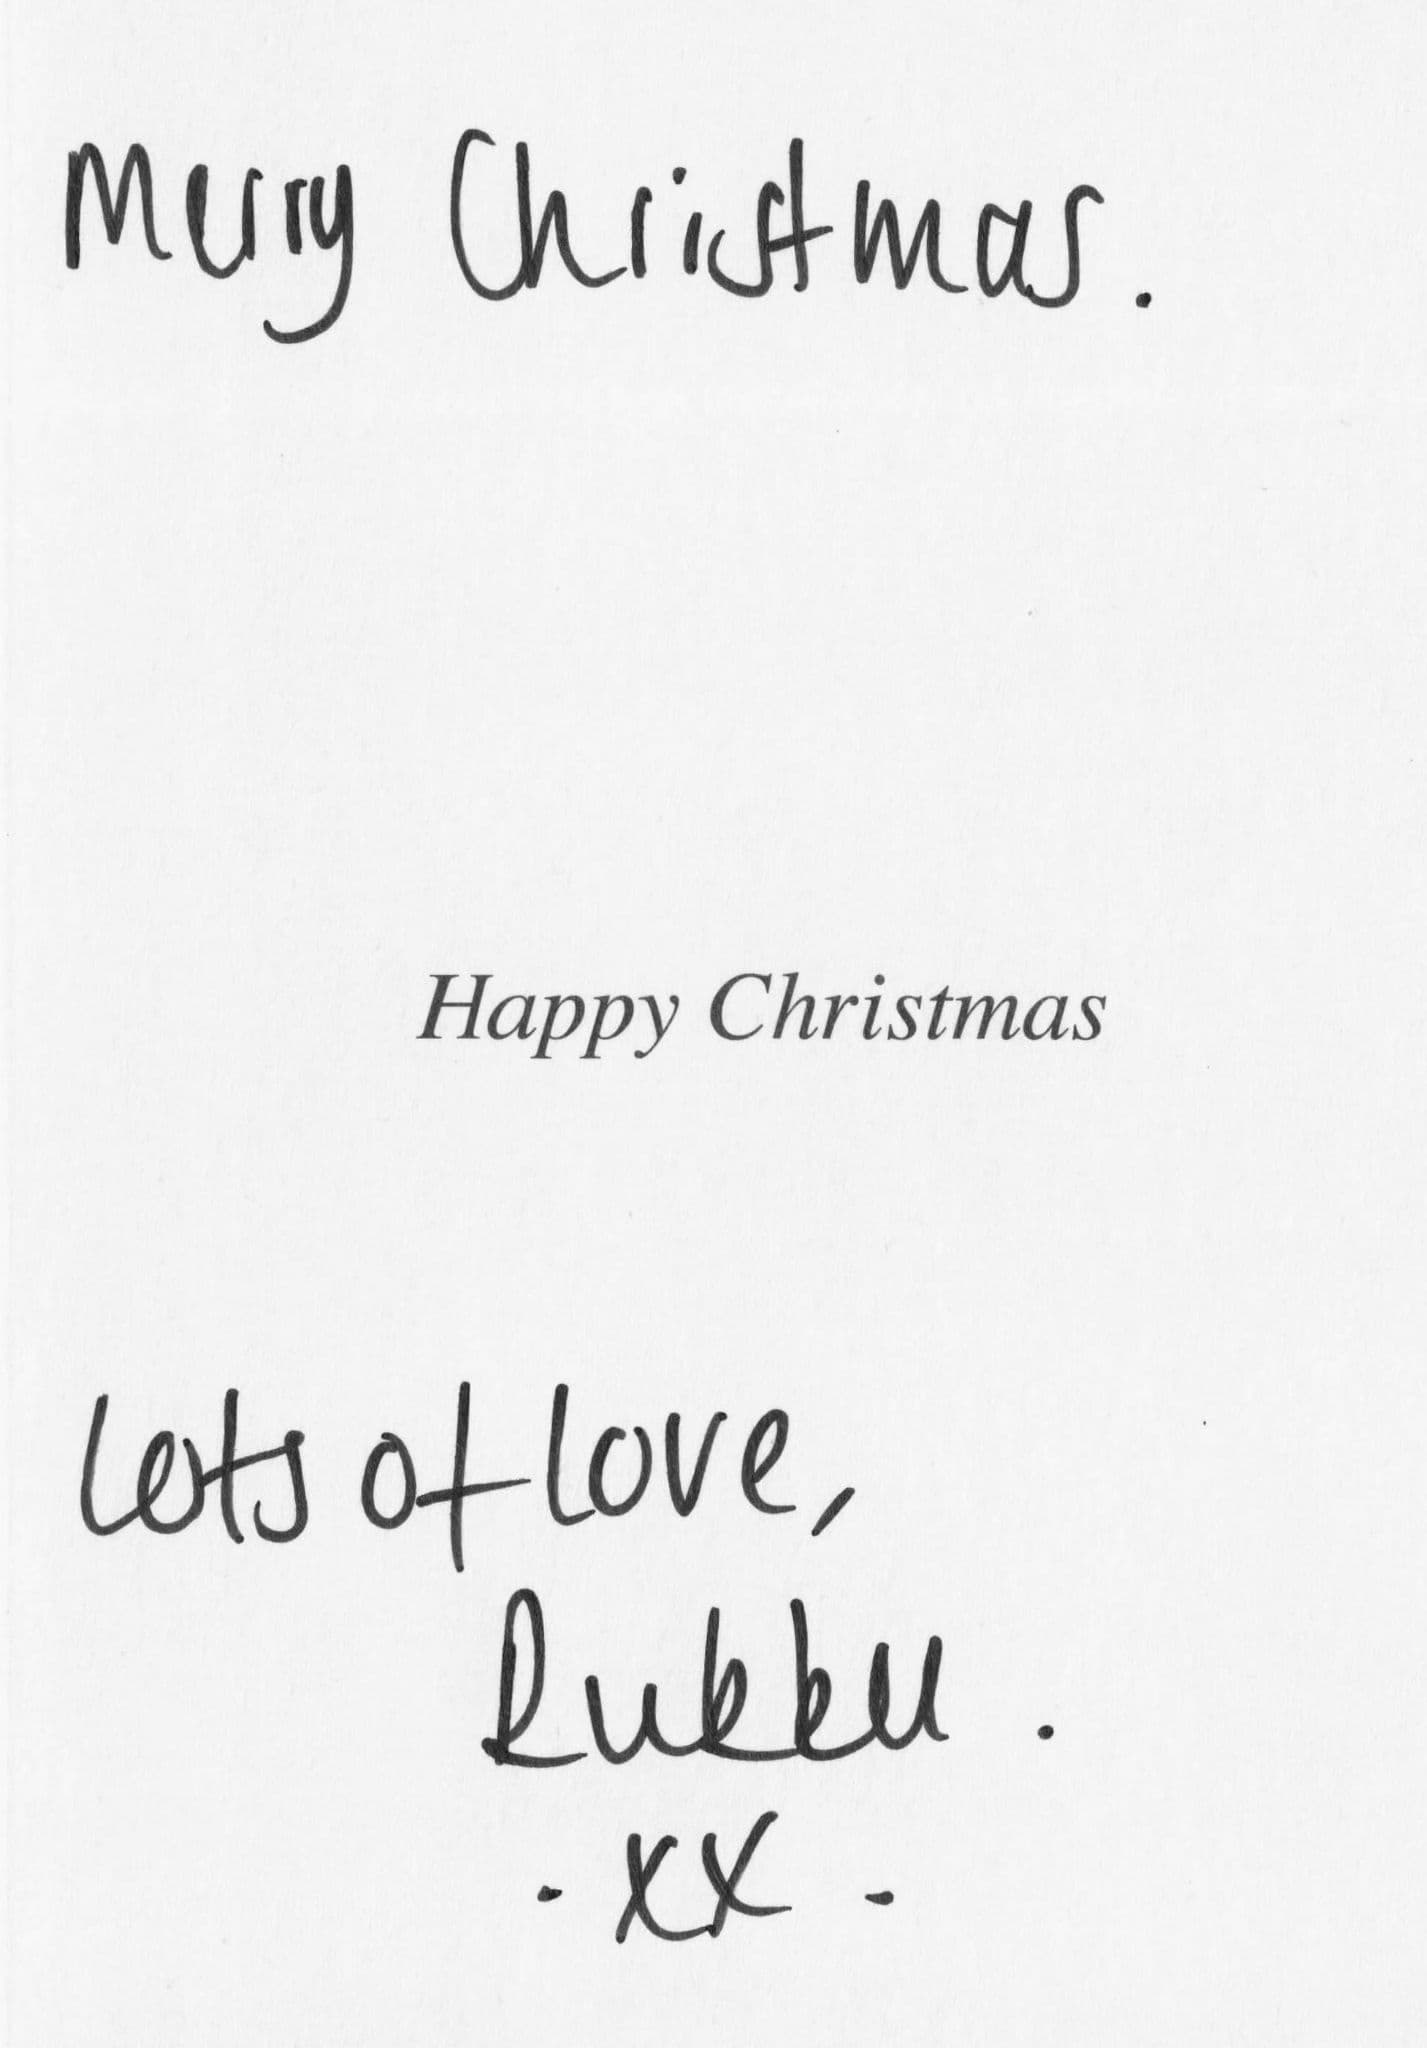 Merry Christmas.
Happy Christmas
Lots of love,
xx